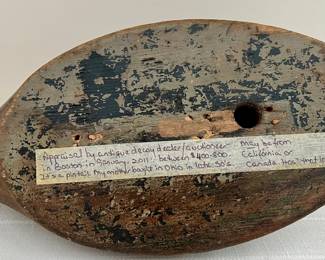 Appraised by antique decoy dealer/auctioneer
in Boston in January, 2011. between $400-800.
It's a pintail. My mother bought in Ohio in late 50's.
May be from
California or
Canada